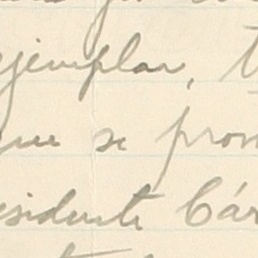 ejemplar, t
que se prom
esidente Cár